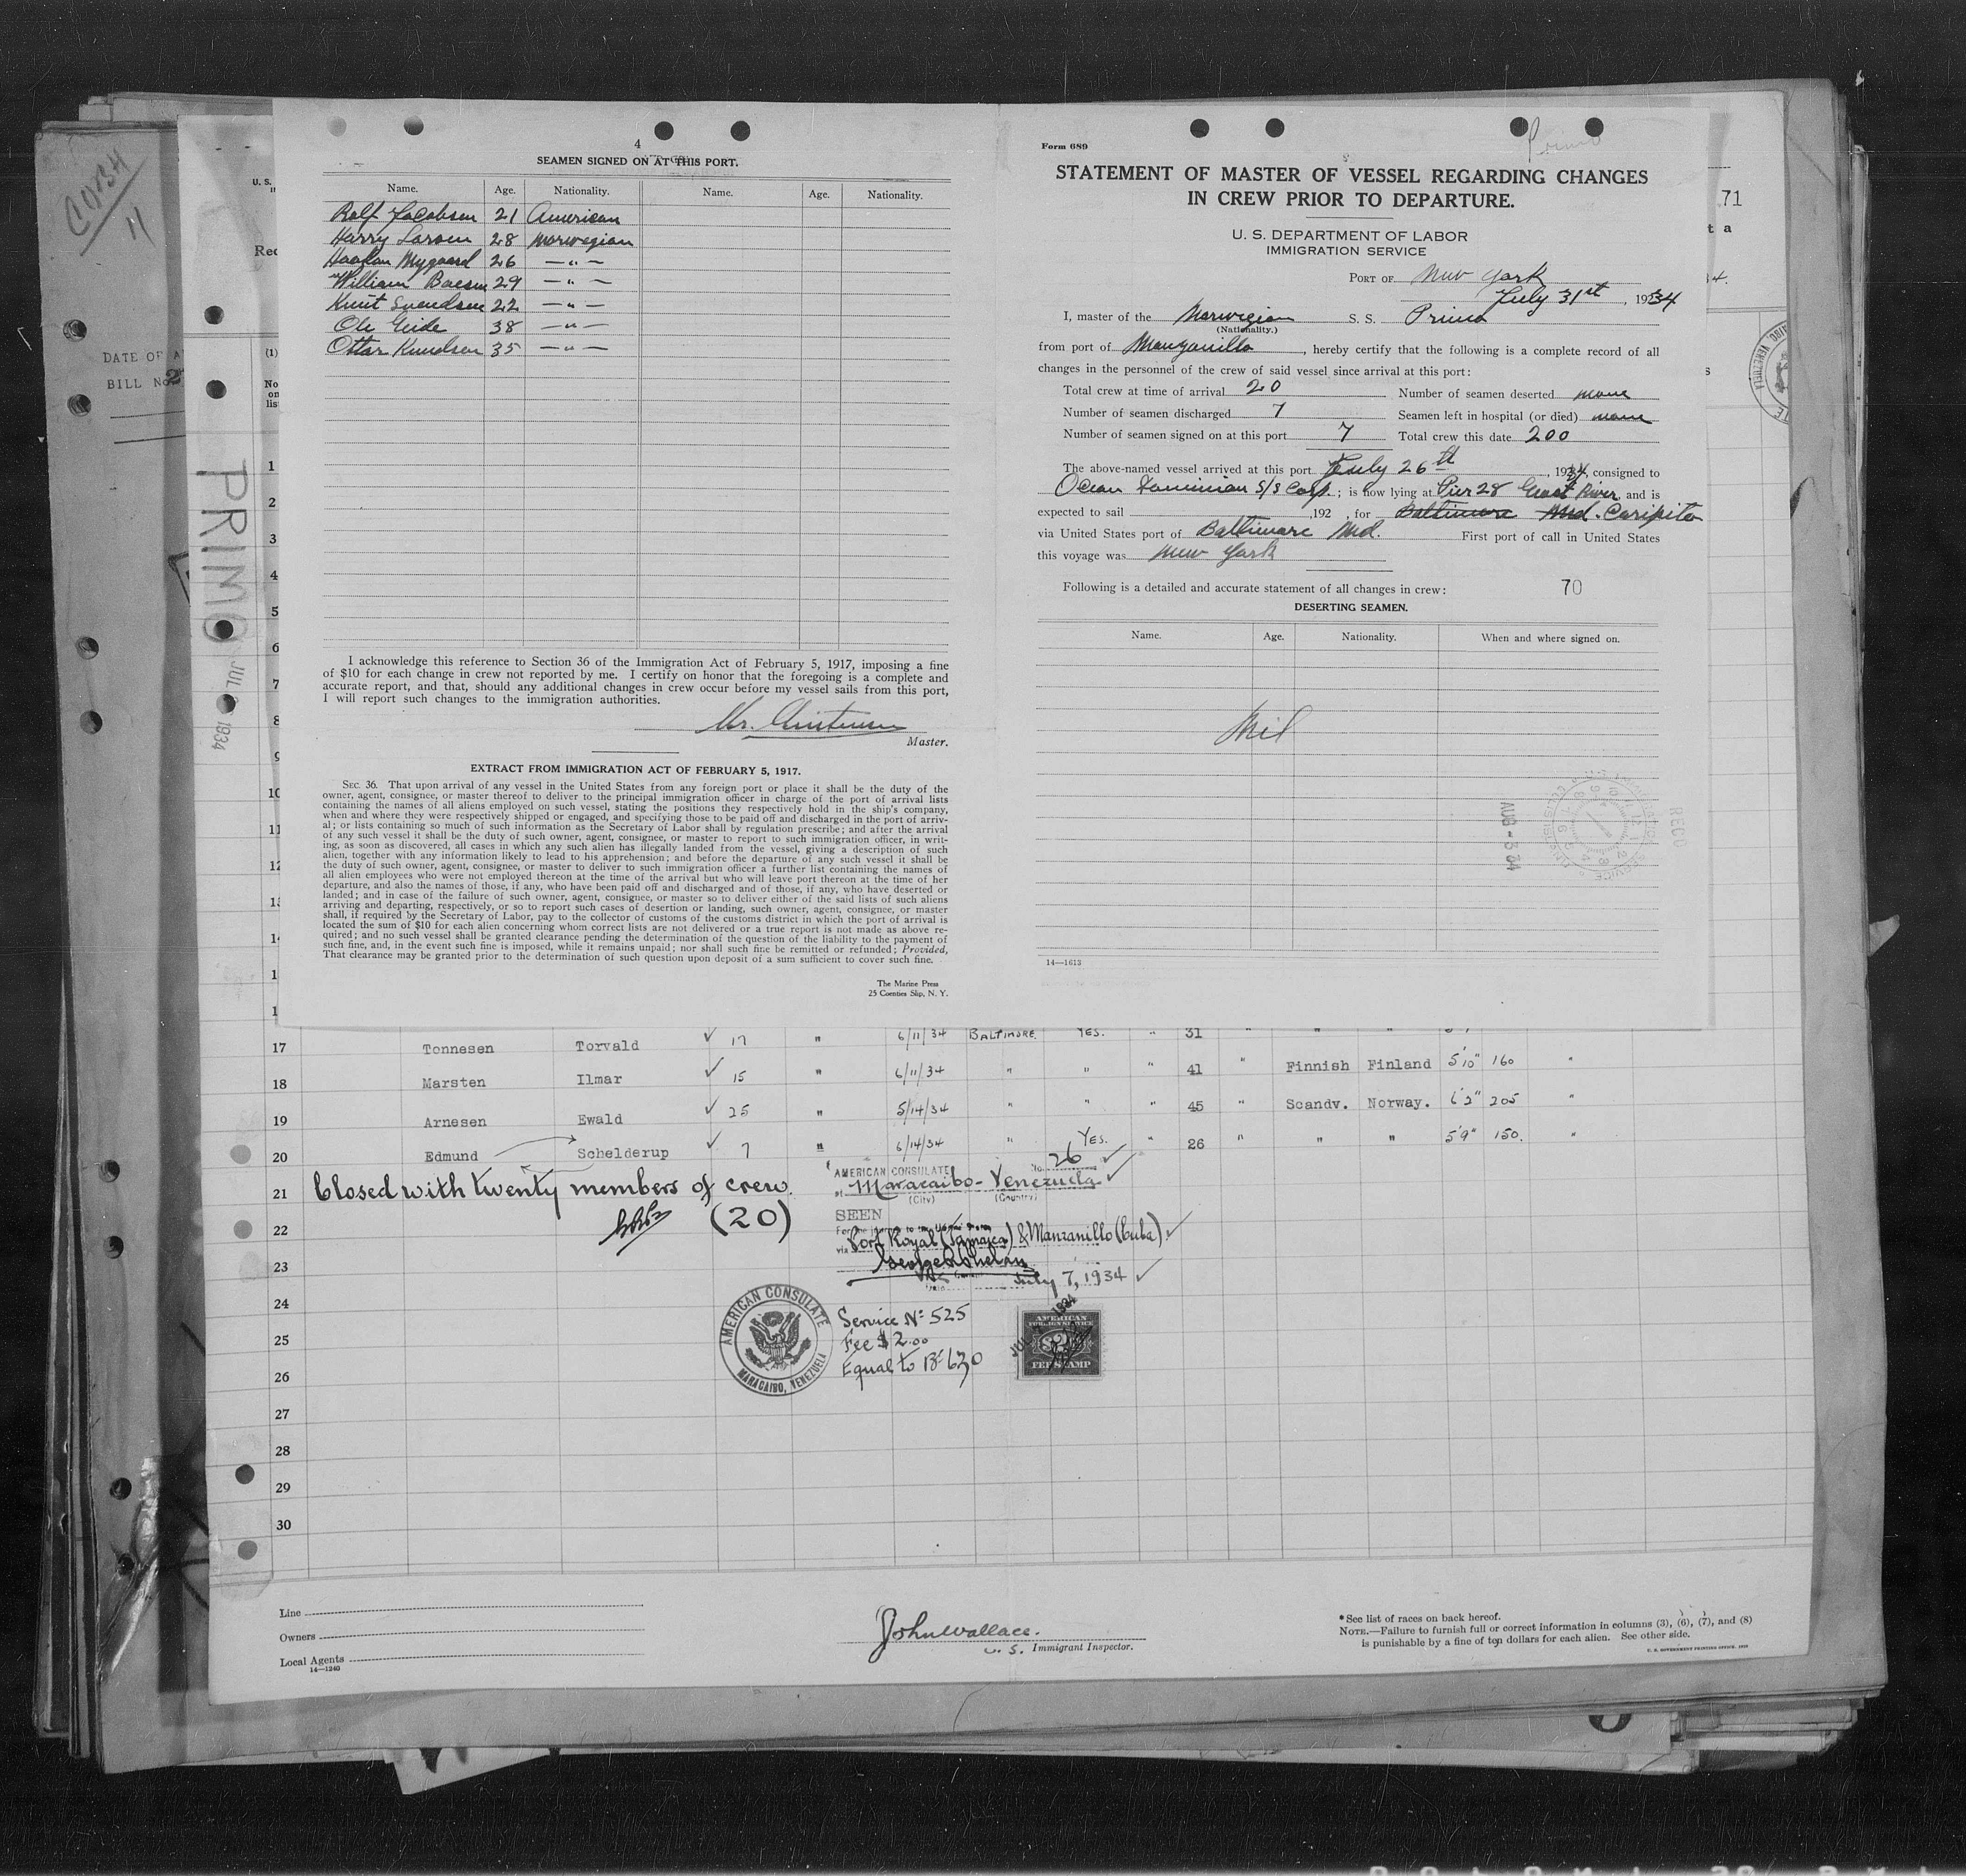 4
SEAMEN SIGNED ON AT THIS PORT.
Name. Age. Nationality. Name. Age. Nationality.
Rolf Jacobsen 21 American
Harry Larsen 28 Norwegian
Haakon Nygaard 26 — " —
William 29 — " —
Knut Svendsen 22 — " —
Ole Eide 38 — " —
Ottar Knudsen 35 — " —
I acknowledge this reference to Section 36 of the Immigration Act of February 5, 1917, imposing a fine
of $10 for each change in crew not reported by me. I certify on honor that the foregoing is a complete and
accurate report, and that, should any additional changes in crew occur before my vessel sails from this port,
I will report such changes to the immigration authorities.
Master.
EXTRACT FROM IMMIGRATION ACT OF FEBRUARY 5, 1917.
SEC. 36. That upon arrival of any vessel in the United States from any foreign port or place it shall be the duty of the
owner, agent, consignee, or master thereof to deliver to the principal immigration officer in charge of the port of arrival lists
containing the names of all aliens employed on such vessel, stating the positions they respectively hold in the ship's company,
when and where they were respectively shipped or engaged, and specifying those to be paid off and discharged in the port of arriv-
al; or lists containing so much of such information as the Secretary of Labor shall by regulation prescribe; and after the arrival
of any such vessel it shall be the duty of such owner, agent, consignee, or master to report to such immigration officer, in writ-
ing, as soon as discovered, all cases in which any such alien has illegally landed from the vessel, giving a description of such
alien, together with any information likely to lead to his apprehension; and before the departure of any such vessel it shall be
the duty of such owner, agent, consignee, or master to deliver to such immigration officer a further list containing the names of
all alien employees who were not employed thereon at the time of the arrival but who will leave port thereon at the time of her
departure, and also the names of those, if any, who have been paid off and discharged and of those, if any, who have deserted or
landed; and in case of the failure of such owner, agent, consignee, or master so to deliver either of the said lists of such aliens
arriving and departing, respectively, or so to report such cases of desertion or landing, such owner, agent, consignee, or master
shall, if required by the Secretary of Labor, pay to the collector of customs of the customs district in which the port of arrival is
located the sum of $10 for each alien concerning whom correct lists are not delivered or a true report is not made as above re-
quired; and no such vessel shall be granted clearance pending the determination of the question of the liability to the payment of
such fine, and, in the event such fine is imposed, while it remains unpaid; nor shall such fine be remitted or refunded; Provided,
That clearance may be granted prior to the determination of such question upon deposit of a sum sufficient to cover such fine.
The Marine Press
25 Coenties Slip, N. Y.
Form 689
Primo
STATEMENT OF MASTER OF VESSEL REGARDING CHANGES
IN CREW PRIOR TO DEPARTURE.
U. S. DEPARTMENT OF LABOR
IMMIGRATION SERVICE
PORT OF New York
July 31st, 1934
I, master of the Norwegian S. S. Primo
(Nationality.)
from port of Manzanillo, hereby certify that the following is a complete record of all
changes in the personnel of the crew of said vessel since arrival at this port:
Total crew at time of arrival 20 Number of seamen deserted none
Number of seamen discharged 7 Seamen left in hospital (or died) none
Number of seamen signed on at this port 7 Total crew this date 200
The above-named vessel arrived at this port July 26th, 1934, consigned to
Ocean Dominion S/S Corp.; is now lying at Pier 28 East River and is
expected to sail , 192 , for Baltimore Md. Caripito
via United States port of Baltimore Md. First port of call in United States
this voyage was New York
Following is a detailed and accurate statement of all changes in crew: 70
DESERTING SEAMEN.
Name. Age. Nationality. When and where signed on.
Nil
AUG - 3 34
REC'D
14—1613
71
DATE OF A
BILL No. 2
PRIMO
JUL 1934
17 Tonnesen Torvald ✓ 17 " 6/11/34 BALTIMORE. YES. " 31 " " "
18 Marsten Ilmar ✓ 15 " 6/11/34 " " " 41 " Finnish Finland 5'10" 160 "
19 Arnesen Ewald ✓ 25 " 5/14/34 " " " 45 " Scandv. Norway. 6'2" 205 "
20 Edmund Schelderup ✓ 7 " 6/14/34 " YES. " 26 " " " 5'9" 150. "
21 Closed with twenty members of crew.
(20)
AMERICAN CONSULATE No. 26 ✓
at Maracaibo - Venezuela ✓
(City) (Country)
SEEN
For the journey to the United States
via Port Royal (Jamaica) & Manzanillo (Cuba) ✓
July 7, 1934 ✓
AMERICAN CONSULATE
MARACAIBO, VENEZUELA
Service No. 525
Fee $2.00
Equal to
AMERICAN
FOREIGN SERVICE
$2
FEE STAMP
22
23
24
25
26
27
28
29
30
Line
Owners
Local Agents
14—1240
John Wallace.
U. S. Immigrant Inspector.
*See list of races on back hereof.
NOTE.—Failure to furnish full or correct information in columns (3), (6), (7), and (8)
is punishable by a fine of ten dollars for each alien. See other side.
U. S. GOVERNMENT PRINTING OFFICE